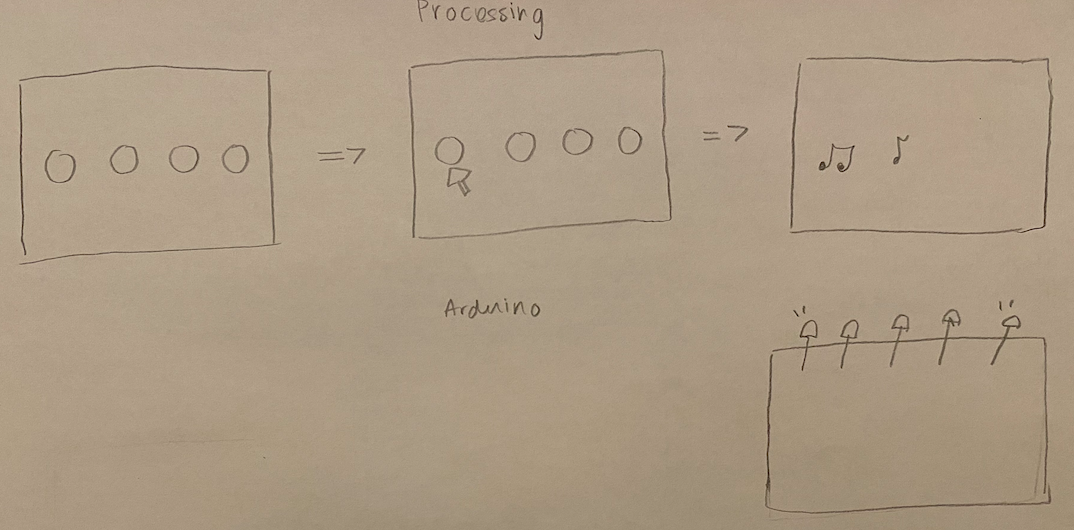 Processing
=>
=>
Arduino